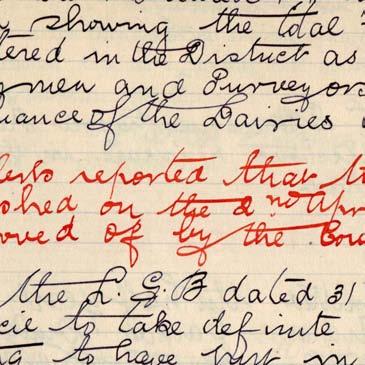 showing the total
tered in the District as
men and Purveyors
liance of the Dairies
Clerk reported that
on the 2nd Apr
oved of by the Cou
the L. G. B dated 31
cie to take definite
to have put in